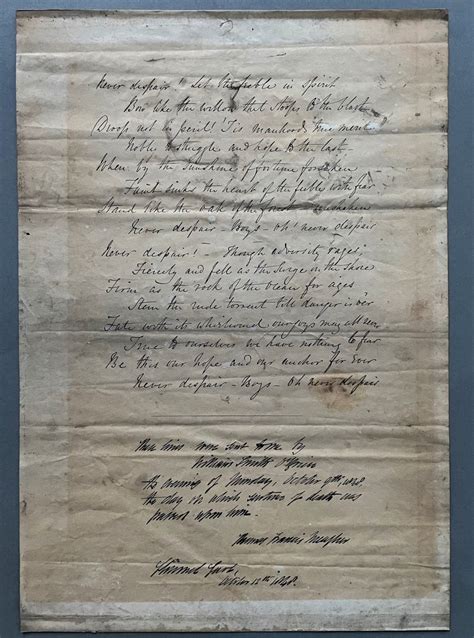 Never despair! Let the feeble in spirit
Bow like the willow that stoops to the blast
Droop not in peril! 'Tis manhoods true merit
Nobly to struggle and hope to the last
When by the sunshine of fortune forsaken
Faint sinks the heart of the feeble with fear
Stand like the oak of the forest unshaken
Never despair - Boys - oh! never despair
Never despair! - Though adversity rages,
Fiercely and fell as the surge on the shore
Firm as the rock of the ocean for ages
Stem the rude torrent till danger is o'er
Fate with its whirlwind our joys may all sever
True to ourselves we have nothing to fear
Be this our hope and our anchor for ever
Never despair - Boys - oh never despair
These lines were sent to me by
William Smith O'Brien
the evening of Monday, October 9th, 1848.
the day on which sentence of death was
passed upon him.
Thomas Francis Meagher
Clonmel Gaol,
October 12th 1848.